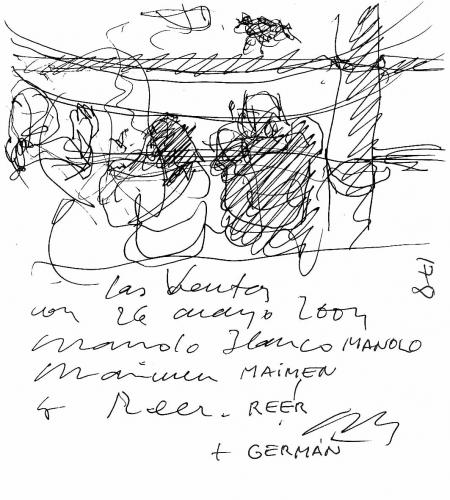 Las Ventas
con 26 mayo 2004
Manolo Blanco MANOLO
Maimen MAIMEN
& Reer. REER
+ GERMÁN